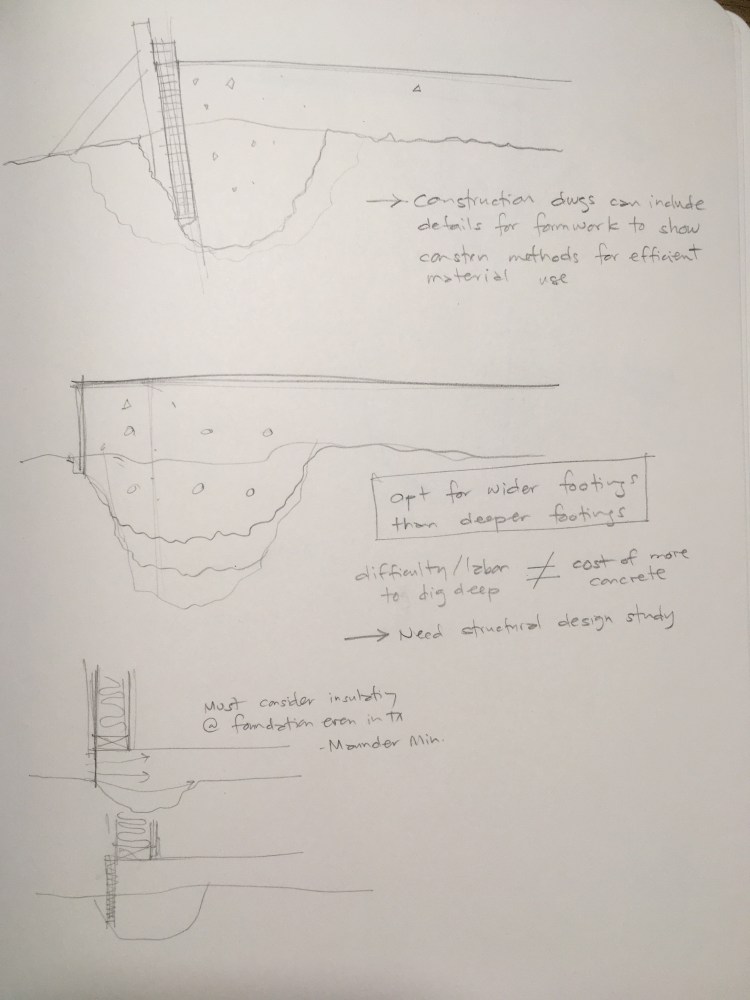 → Construction dwgs can include
details for formwork to show
constrn methods for efficient
material use
Opt for wider footings
than deeper footings
difficulty/labor ≠ cost of more
to dig deep concrete
→ Need structural design study
Must consider insulating
@ foundation even in TX
- Maunder Min.